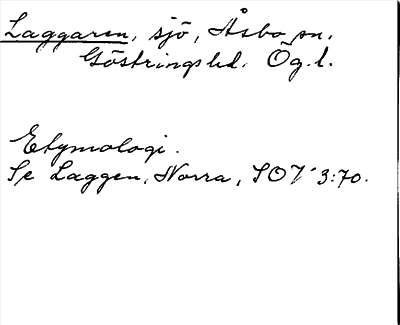 Laggaren, sjö, Åsbo sn.
Göstringshd. Ög. l.
Etymologi.
Se Laggen, Norra, SOV 3:70.